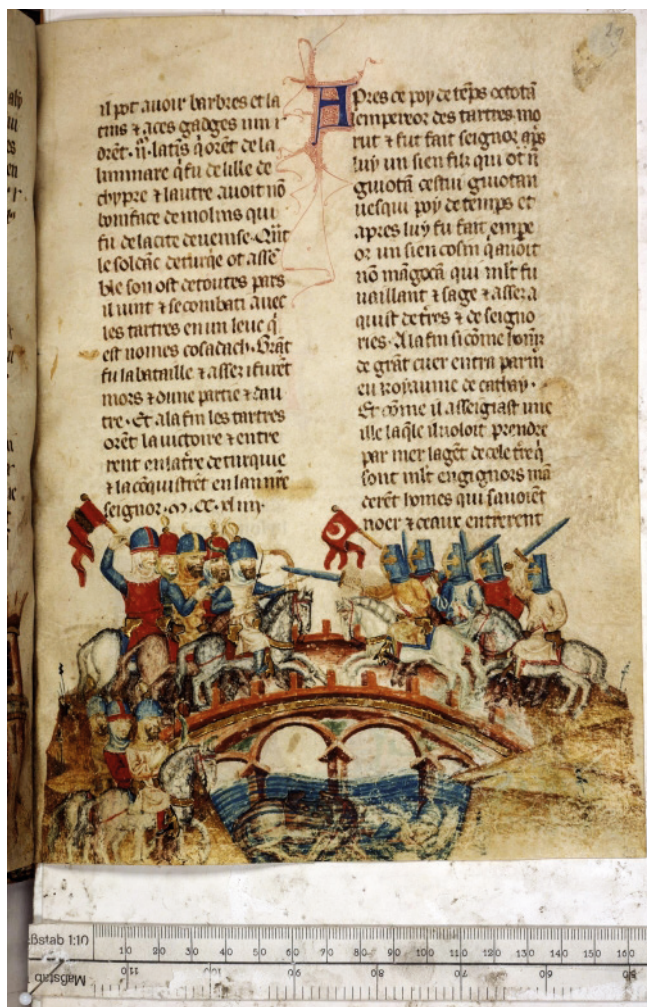 il pot avoir barbres et la
tins ⁊ a ces gadges vin i
orēt .ii. latīs q̄ orēt de la
luminare q̄ fu de lille de
chypre ⁊ lautre avoit nō
boniface de molins qui
fu de la cite de venise. Qn̄t
le soldāc de turq̄e ot asse
ble son ost de toutes pars
il vint ⁊ se combati avec
les tartres en un leuc q̄
est nomes cosadach. Grāt
fu la bataille ⁊ asser i furēt
mors ⁊ dune partie ⁊ dau
tre. Et a la fin les tartres
orēt la victoire ⁊ entre
rent en la tr̄e de turquie
⁊ la cōquistrēt en lan nr̄e
seignor .m. cc. xliiii.
APres ce poy de tēps octotā
lempereor des tartres mo
rut ⁊ fut fait seignor ap̄s
luy un sien filz qui ot nō
guiotā cestui guiotan
vesqui poy de temps et
apres luy fu fait empe
or un sien cosin q̄ avoit
nō māgocā qui ml̄t fu
vaillant ⁊ sage ⁊ asser a
quist de tr̄es ⁊ de seigno
ries. A la fin si cōme hom̄e
de grāt cuer entra parmi
eu royaume de cathay.
Et cōme il asseigiast une
ille laq̄le il voloit prendre
par mer la gēt de cele tr̄e q̄
sont ml̄t engignors mā
derēt homes qui savoiēt
noer ⁊ ceaux entrerent
29
Maßstab 1:10
10 20 30 40 50 60 70 80 90 100 110 120 130 140 150 160
Maßstab